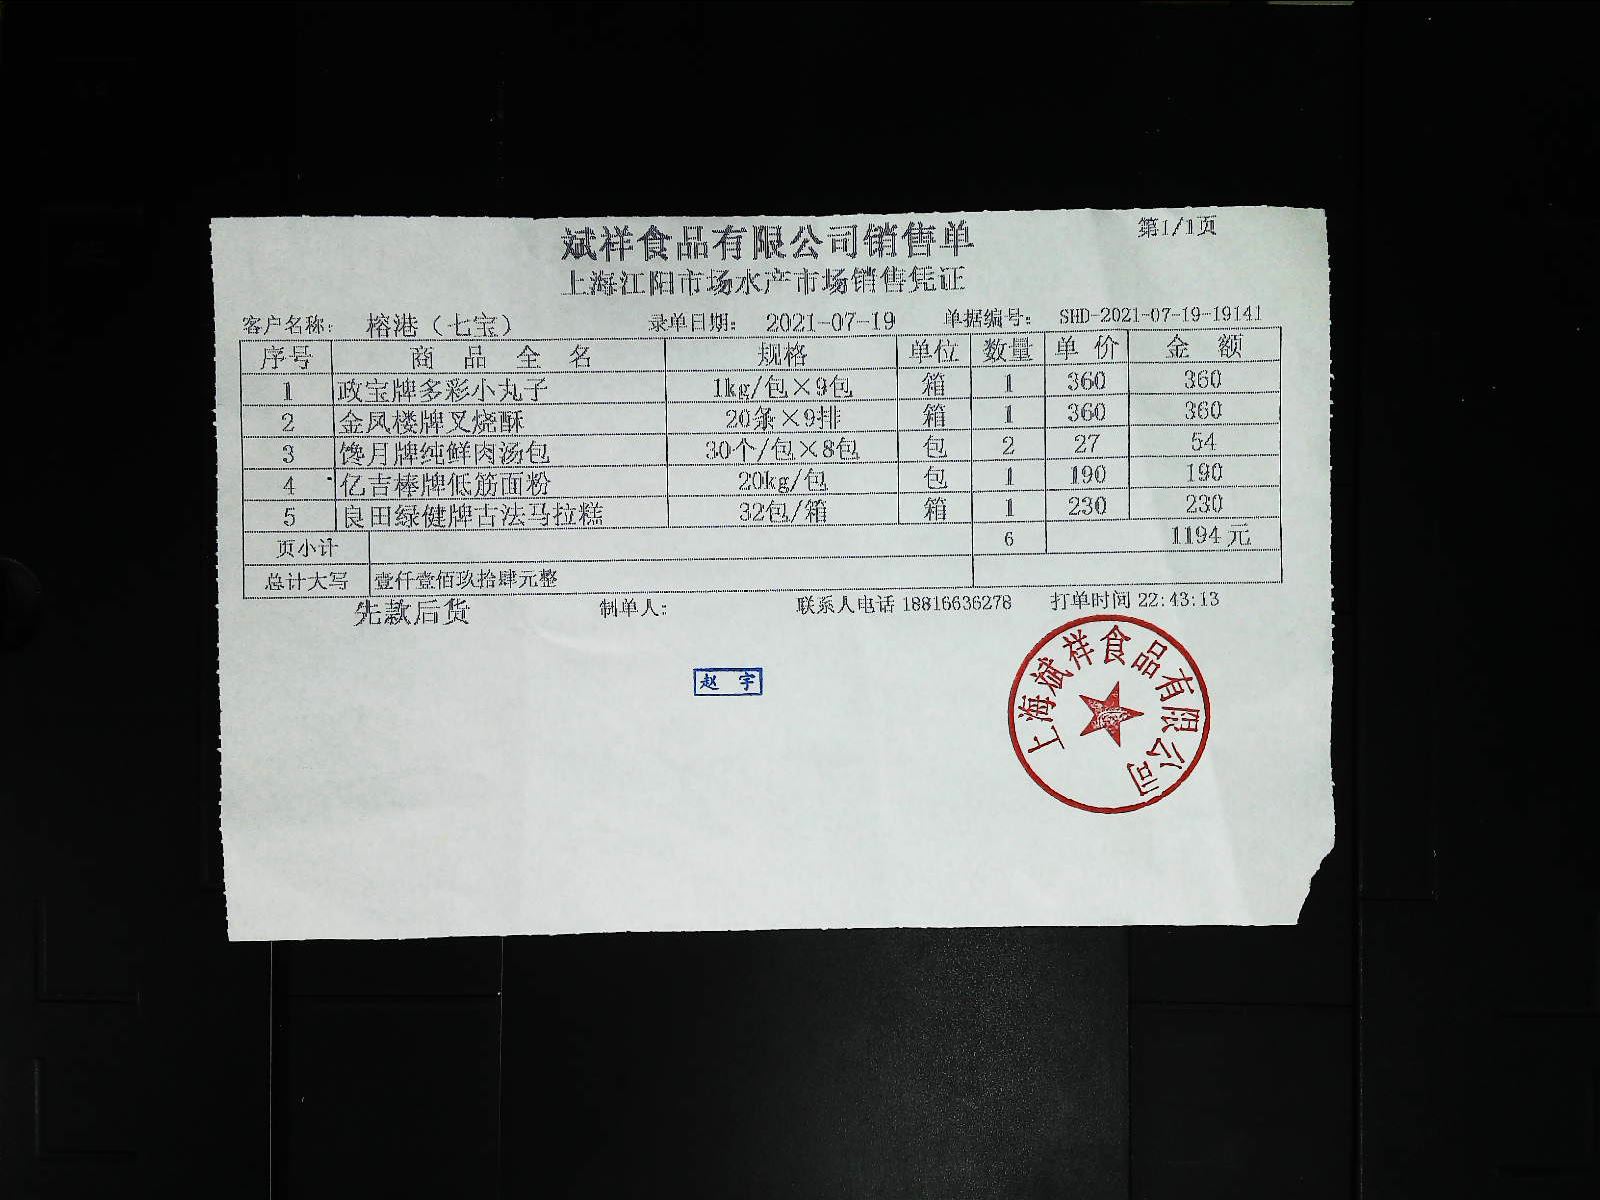 斌祥食品有限公司销售单 第1/1页
上海江阳市场水产市场销售凭证
客户名称: 榕港（七宝） 录单日期: 2021-07-19 单据编号: SHD-2021-07-19-19141
序号 商品全名 规格 单位 数量 单价 金额
1 政宝牌多彩小丸子 1kg/包×9包 箱 1 360 360
2 金凤楼牌叉烧酥 20条×9排 箱 1 360 360
3 馋月牌纯鲜肉汤包 30个/包×8包 包 2 27 54
4 亿吉棒牌低筋面粉 20kg/包 包 1 190 190
5 良田绿健牌古法马拉糕 32包/箱 箱 1 230 230
页小计 6 1194元
总计大写 壹仟壹佰玖拾肆元整
先款后货 制单人: 联系人电话 18816636278 打单时间 22:43:13
赵宇
上海斌祥食品有限公司